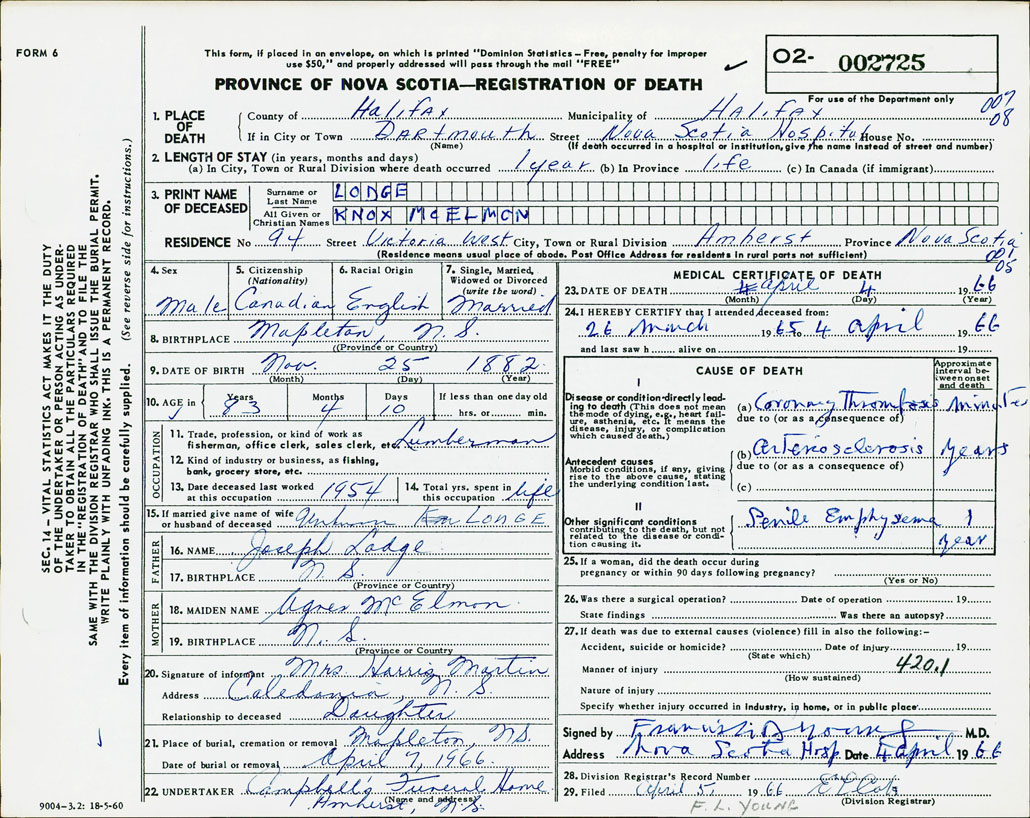 FORM 6
This form, if placed in an envelope, on which is printed "Dominion Statistics – Free, penalty for improper
use $50," and properly addressed will pass through the mail "FREE"
O2- 002725
PROVINCE OF NOVA SCOTIA—REGISTRATION OF DEATH
For use of the Department only
007
08
1. PLACE OF DEATH
County of Halifax Municipality of Halifax
If in City or Town Dartmouth Street Nova Scotia Hospital House No.
(Name) (If death occurred in a hospital or institution, give the name instead of street and number)
2. LENGTH OF STAY (in years, months and days)
(a) In City, Town or Rural Division where death occurred 1 year (b) In Province life (c) In Canada (if immigrant)
3. PRINT NAME OF DECEASED
Surname or Last Name LODGE
All Given or Christian Names KNOX McELMON
RESIDENCE No 94 Street Victoria West City, Town or Rural Division Amherst Province Nova Scotia
(Residence means usual place of abode. Post Office Address for residents in rural parts not sufficient)
001
05
4. Sex Male
5. Citizenship (Nationality) Canadian
6. Racial Origin English
7. Single, Married, Widowed or Divorced (write the word) Married
8. BIRTHPLACE Mapleton, N. S.
(Province or Country)
9. DATE OF BIRTH Nov. 25 1882
(Month) (Day) (Year)
10. AGE in Years 83 Months 4 Days 10 If less than one day old hrs. or min.
OCCUPATION
11. Trade, profession, or kind of work as
fisherman, office clerk, sales clerk, etc. Lumberman
12. Kind of industry or business, as fishing,
bank, grocery store, etc.
13. Date deceased last worked at this occupation 1954
14. Total yrs. spent in this occupation life
15. If married give name of wife
or husband of deceased LODGE
FATHER
16. NAME Joseph Lodge
17. BIRTHPLACE N. S.
(Province or Country)
MOTHER
18. MAIDEN NAME Agnes McElmon
19. BIRTHPLACE N. S.
(Province or Country)
20. Signature of informant Mrs Harris Martin
Address Caledonia, N. S.
Relationship to deceased Daughter
21. Place of burial, cremation or removal Mapleton, NS.
Date of burial or removal April 7, 1966.
22. UNDERTAKER Campbell's Funeral Home
(Name and address)
Amherst, N.S.
MEDICAL CERTIFICATE OF DEATH
23. DATE OF DEATH April 4 1966
(Month) (Day) (Year)
24. I HEREBY CERTIFY that I attended deceased from:
26 March 1965 to 4 april 1966
and last saw h alive on 19
CAUSE OF DEATH
Approximate interval between onset and death
I
Disease or condition-directly leading to death (This does not mean the mode of dying, e.g., heart failure, asthenia, etc. It means the disease, injury, or complication which caused death.)
(a) Coronary Thrombosis minutes
due to (or as a consequence of)
Antecedent causes
Morbid conditions, if any, giving rise to the above cause, stating the underlying condition last.
(b) arteriosclerosis years
due to (or as a consequence of)
(c)
II
Other significant conditions
contributing to the death, but not related to the disease or condition causing it.
Senile Emphysema 1 year
25. If a woman, did the death occur during
pregnancy or within 90 days following pregnancy?
(Yes or No)
26. Was there a surgical operation? Date of operation 19
State findings Was there an autopsy?
27. If death was due to external causes (violence) fill in also the following:–
Accident, suicide or homicide? Date of injury 19
(State which)
Manner of injury 420.1
(How sustained)
Nature of injury
Specify whether injury occurred in Industry, in home, or in public place
Signed by M.D.
Address Nova Scotia Hosp. Date 4 April 1966
28. Division Registrar's Record Number
29. Filed April 5, 1966
(Division Registrar)
F. L. YOUNG
SEC. 14 – VITAL STATISTICS ACT MAKES IT THE DUTY
OF THE UNDERTAKER OR A PERSON ACTING AS UNDER-
TAKER TO OBTAIN ALL THE PARTICULARS REQUIRED
IN THE "REGISTRATION OF DEATH" AND TO FILE THE
SAME WITH THE DIVISION REGISTRAR WHO SHALL ISSUE THE BURIAL PERMIT.
WRITE PLAINLY WITH UNFADING INK. THIS IS A PERMANENT RECORD.
Every item of information should be carefully supplied. (See reverse side for instructions.)
9004–3.2: 18-5-60